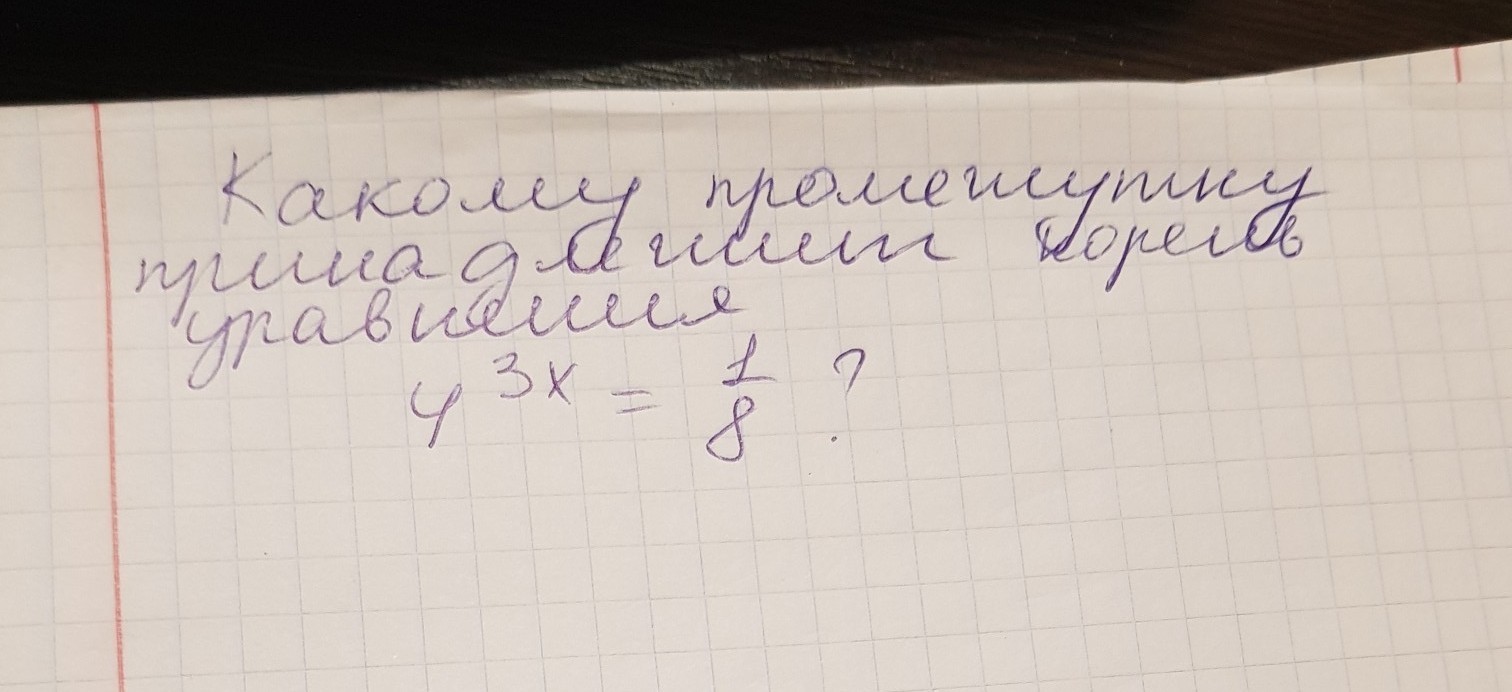 Какому промежутку
принадлежит корень
уравнения
4^{3x} = \frac{1}{8} ?